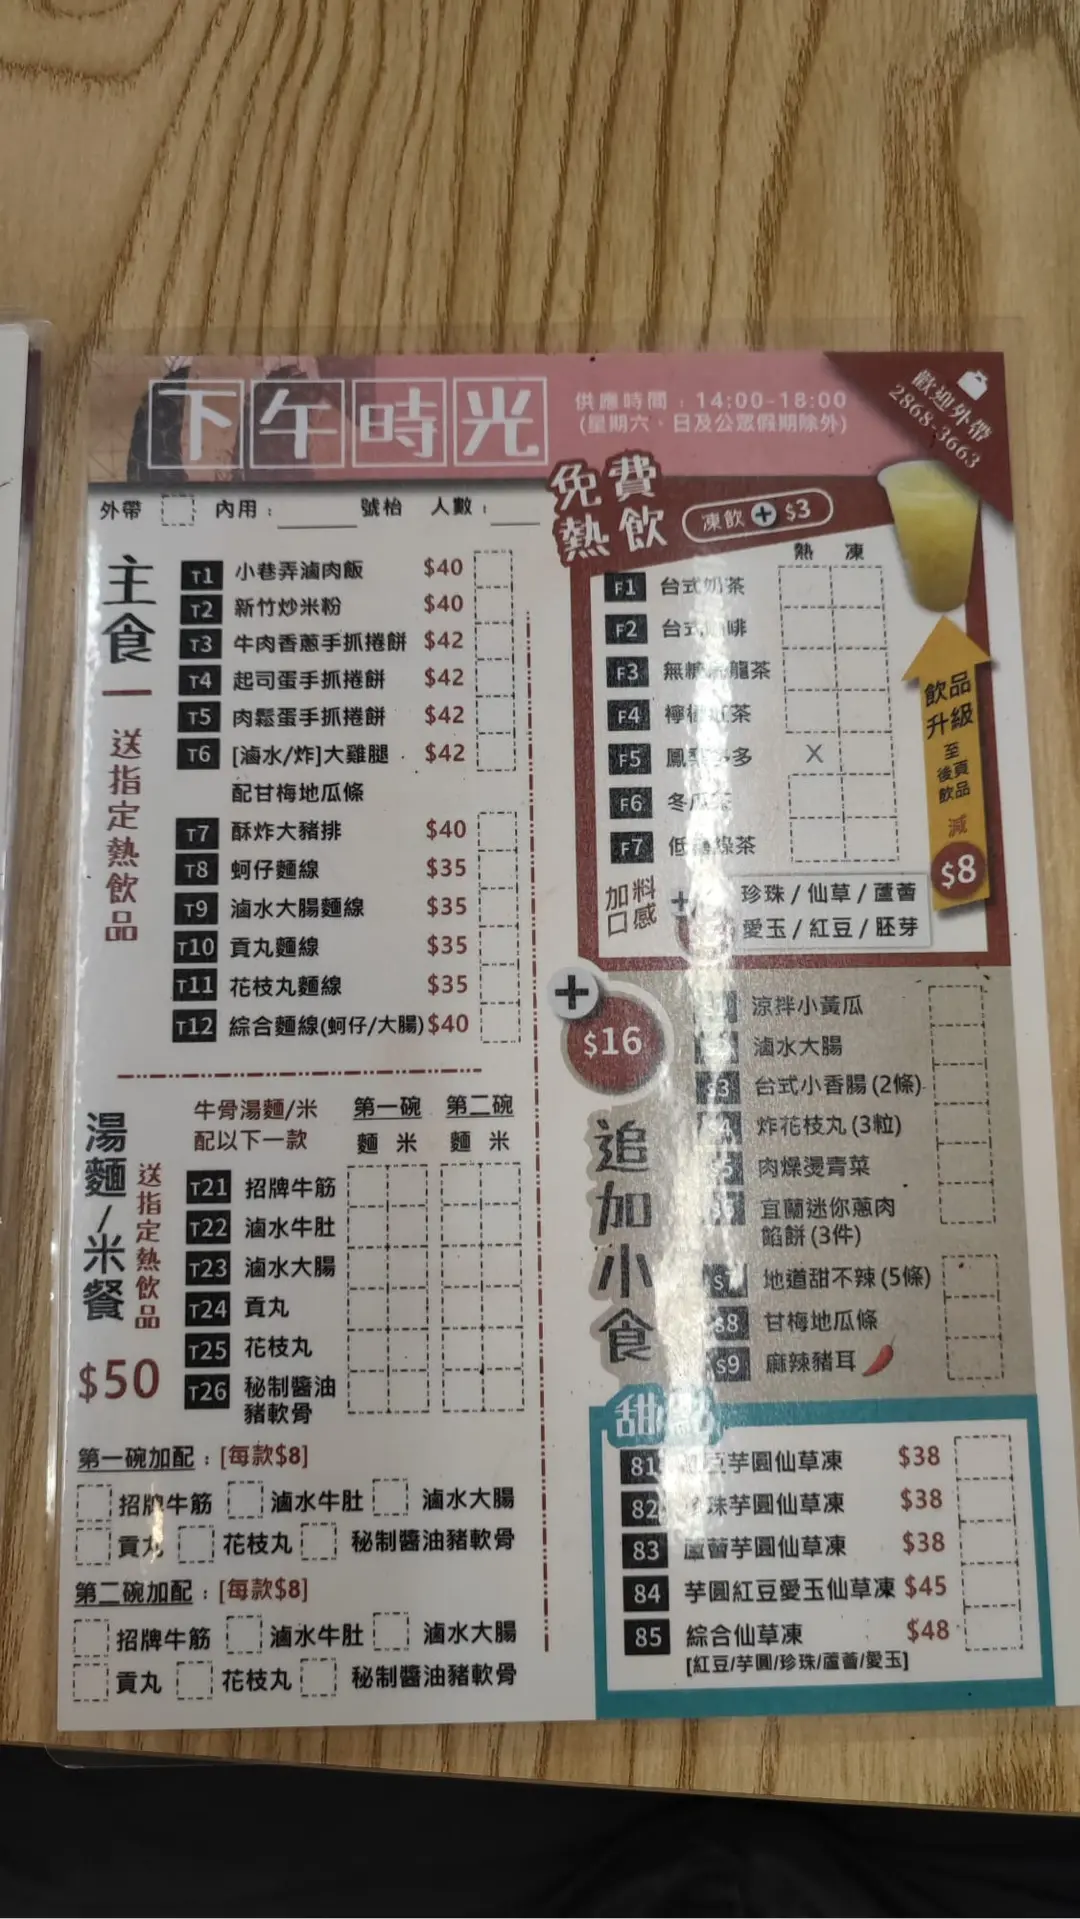 下午時光
供應時間：14:00-18:00
(星期六、日及公眾假期除外)
歡迎外帶
2868-3663
外帶 內用： 號枱 人數：
主食
送指定熱飲品
T1 小巷弄滷肉飯 $40
T2 新竹炒米粉 $40
T3 牛肉香蔥手抓捲餅 $42
T4 起司蛋手抓捲餅 $42
T5 肉鬆蛋手抓捲餅 $42
T6 [滷水/炸]大雞腿 $42
配甘梅地瓜條
T7 酥炸大豬排 $40
T8 蚵仔麵線 $35
T9 滷水大腸麵線 $35
T10 貢丸麵線 $35
T11 花枝丸麵線 $35
T12 綜合麵線(蚵仔/大腸) $40
湯麵/米餐
送指定熱飲品
$50
牛骨湯麵/米 第一碗 第二碗
配以下一款 麵 米 麵 米
T21 招牌牛筋
T22 滷水牛肚
T23 滷水大腸
T24 貢丸
T25 花枝丸
T26 秘制醬油
豬軟骨
第一碗加配：[每款$8]
招牌牛筋 滷水牛肚 滷水大腸
貢丸 花枝丸 秘制醬油豬軟骨
第二碗加配：[每款$8]
招牌牛筋 滷水牛肚 滷水大腸
貢丸 花枝丸 秘制醬油豬軟骨
免費
熱飲
凍飲+$3
熱 凍
F1 台式奶茶
F2 台式 啡
F3 無糖 龍茶
F4 檸檬 茶
F5 鳳 多 X
F6 冬瓜
F7 低 綠茶
加料
口感
+
珍珠/仙草/蘆薈
愛玉/紅豆/胚芽
飲品
升級
至
後頁
飲品
減
$8
+
$16
追加小食
涼拌小黃瓜
滷水大腸
S3 台式小香腸(2條)
炸花枝丸(3粒)
肉燥燙青菜
宜蘭迷你蔥肉
餡餅(3件)
S7 地道甜不辣(5條)
S8 甘梅地瓜條
S9 麻辣豬耳
甜點
81 豆芋圓仙草凍 $38
82 珍珠芋圓仙草凍 $38
83 蘆薈芋圓仙草凍 $38
84 芋圓紅豆愛玉仙草凍 $45
85 綜合仙草凍 $48
[紅豆/芋圓/珍珠/蘆薈/愛玉]